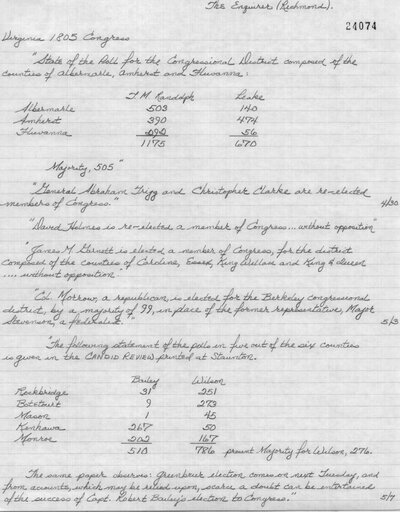 The Enquirer (Richmond).
24074
Virginia 1805 Congress
"State of the Poll for the Congressional District composed of the
counties of Albemarle, Amherst and Fluvanna:
T M Randolph Leake
Albemarle 503 140
Amherst 390 474
Fluvanna 56
1175 670
Majority, 505"
"General Abraham Trigg and Christopher Clarke are re-elected
members of Congress." 4/30
"David Holmes is re-elected a member of Congress... without opposition"
"James M. Garnett is elected a member of Congress, for the district
composed of the counties of Caroline, Essex, King William and King & Queen
.... without opposition"
"Col. Morrow, a republican, is elected for the Berkeley congressional
district, by a majority of 99, in place of the former representative, Major
Stevenson, a federalist." 5/3
"The following statement of the polls in five out of the six counties
is given in the CANDID REVIEW printed at Staunton.
Bailey Wilson
Rockbridge 31 251
Botetourt 9 273
Mason 1 45
Kenhawa 267 50
Monroe 202 167
510 786 present Majority for Wilson, 276.
The same paper observes: Greenbrier election comes on next Tuesday, and
from accounts, which may be relied upon, scarce a doubt can be entertained
of the success of Capt. Robert Bailey's election to Congress." 5/7